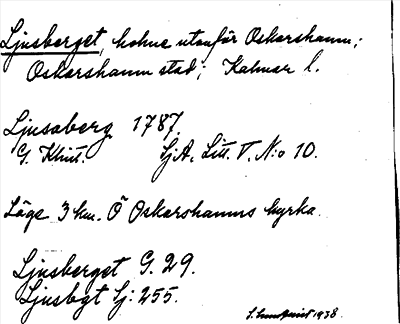 Ljusberget, holme utanför Oskarshamn;
Oskarshamn stad; Kalmar l.
Ljusaberg 1787.
G. Klint. Sj A. Litt. V. N:o 10.
Läge 3 km. Ö Oskarshamns kyrka.
Ljusberget G. 29.
Ljusbgt Sj: 255.
1938